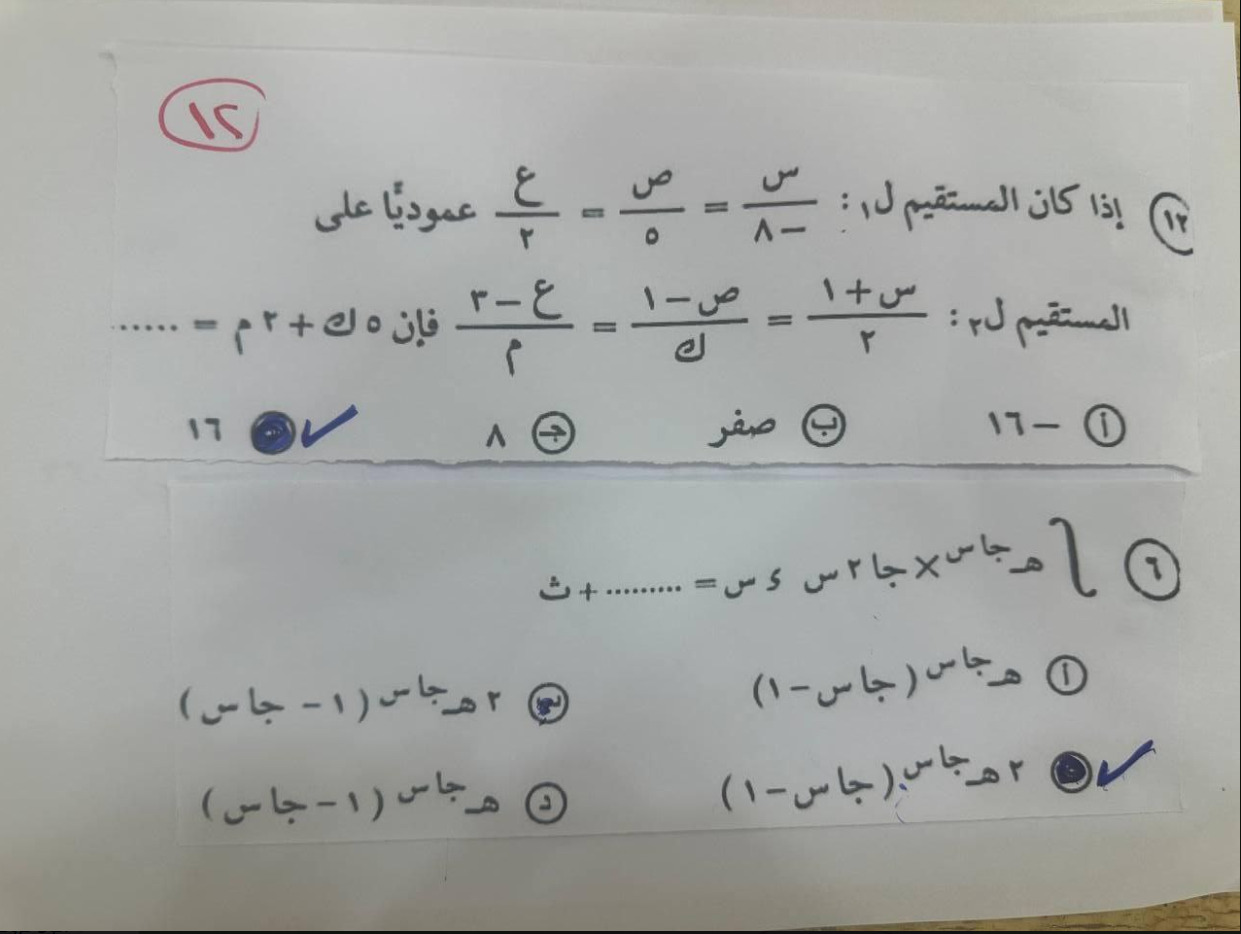 ١٢
١٢ إذا كان المستقيم ل١ : س/−٨ = ص/٥ = ع/٢ عموديًّا على
المستقيم ل٢ : س+١/٢ = ص−١/ك = ع−٣/م فإن ٥ ك + ٢ م = ......
أ −١٦ ب صفر جـ ٨ ١٦
٦ ∫ هـ^جاس × جا ٢ س ء س = ......... + ث
أ هـ^جاس (جاس−١) جـ ٢ هـ^جاس (١ − جاس)
٢ هـ^جاس (جاس−١) د هـ^جاس (١−جاس)